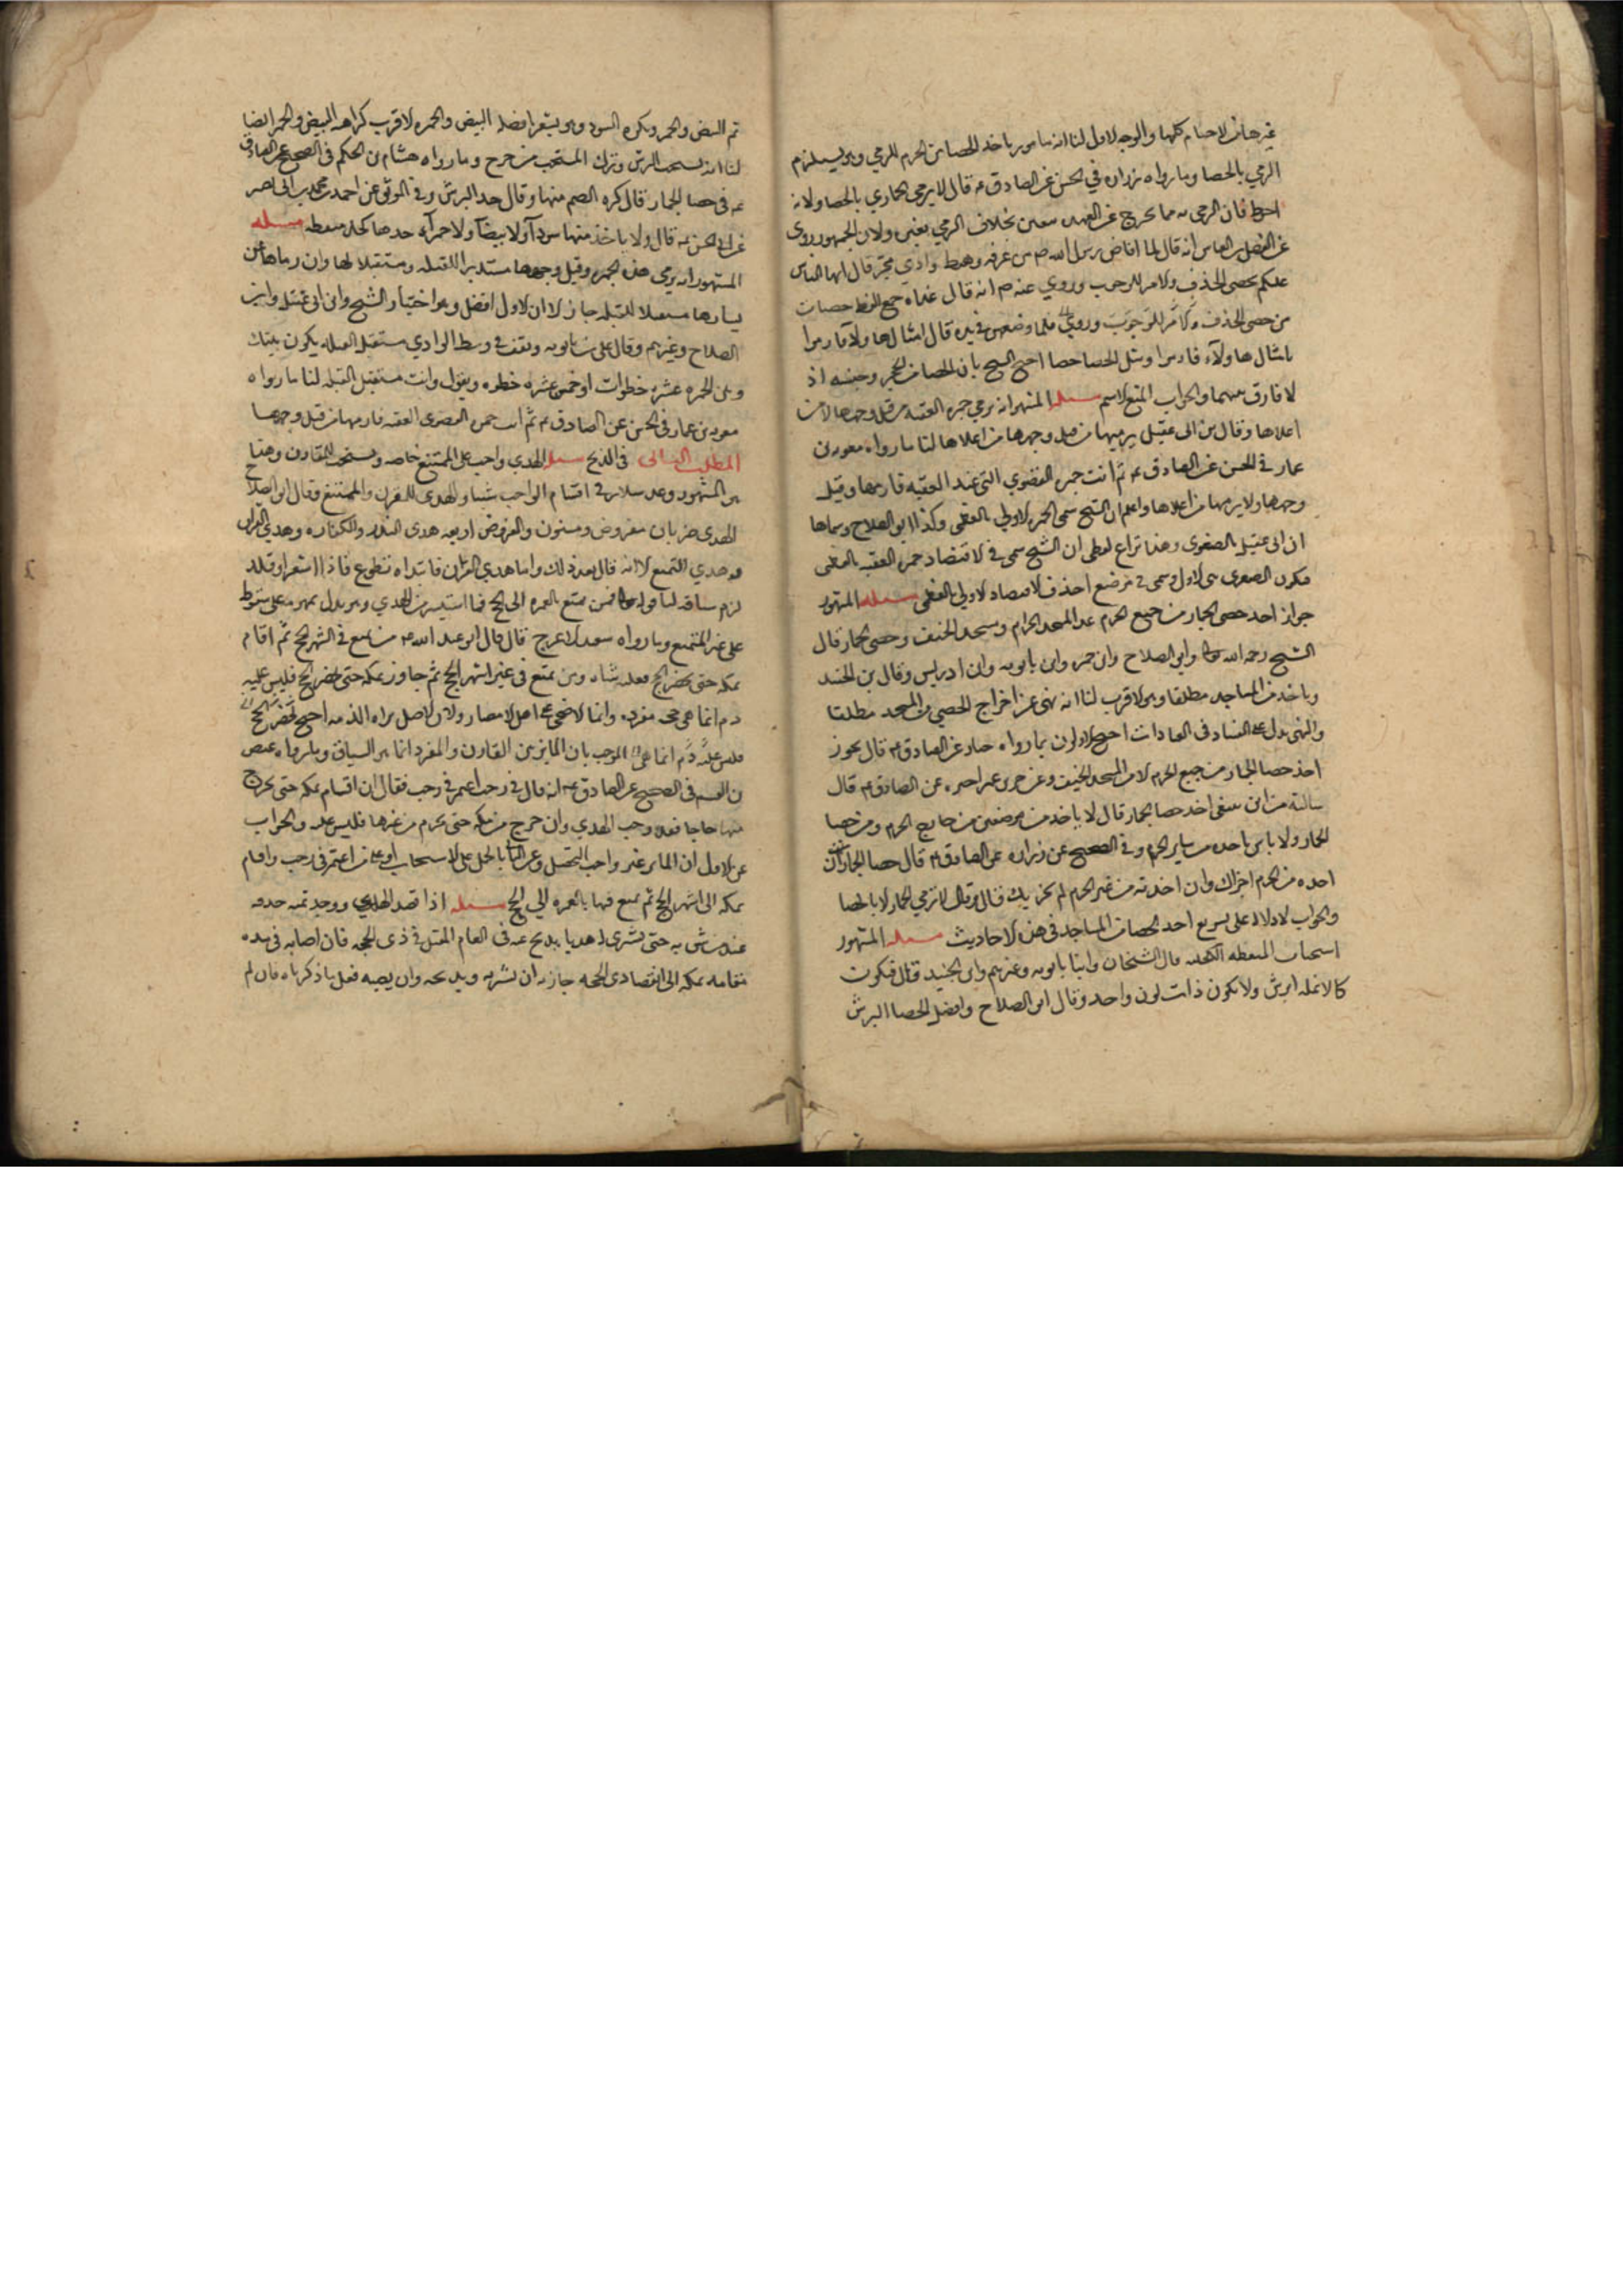 غير جائز لاحسام كلها والوجه الاول لنا انه مامور باخذ الحصا من الحرم للرمي وهو يستلزم
الرمي بالحصا وما رواه زراره في الحسن عن الصادق ع قال لا ترمي الجمار الا بالحصا ولانه
احوط فان الرمي به مما يخرج عن العهده بيقين بخلاف الرمي بغيره ولان الجمهور روى
عن الفضل بن العباس انه قال لما افاض رسول الله ص من عرفه وهبط وادي محسر قال ايها الناس
عليكم بحصى الخذف والامر للوجوب وروي عنه ص انه قال غداه جمع القط حصيات
من حصى الخذف والامر للوجوب وروي فلما وضعهن في يده قال امثال هاولاء فارموا
بامثال هاولاء فارموا ومثل الحصا حصا احتج الشيخ بان الحصا من الحجر وجنسه اذ
لا فارق بينهما والجواب المنع لاسم مسله المشهور انه يرمي جمره العقبه من قبل وجهها لا من
اعلاها وقال بن ابي عقيل يرميها من قبل وجهها من اعلاها لنا ما رواه معويه بن
عمار في الحسن عن الصادق ع ثم ائت جمره القصوي التي عند العقبه فارمها من قبل
وجهها ولا يرمها من اعلاها واعلم ان الشيخ سمى الجمره الاولي بالعظمى وكذا ابو الصلاح وسماها
ابن ابي عقيل بالصغوى وهذا نزاع لفظي ان الشيخ سمى في الاقتصاد جمره العقبه بالعظمى
فيكون الصغرى هي الاول وسمى في موضع اخر من الاقتصاد الاولي بالعظمى مسله المشهور
جواز اخذ حصى الجمار من جميع الحرم عدا المسجد الحرام ومسجد الخيف وحصى الجمار قال
الشيخ رحمه الله وابو الصلاح وابن حمزه وابن بابويه وابن ادريس وقال بن الجنيد
وياخذ من المساجد مطلقا وهو الاقرب لنا انه نهى عن اخراج الحصي من المسجد مطلقا
والنهى يدل على الفساد في العبادات احتج الاولون بما رواه حنان عن الصادق ع قال يجوز
اخذ حصا الجمار من جميع الحرم الا من المسجد الحرام ومسجد الخيف وعن حريز عمن اخبره عن الصادق ع قال
سالته من اين ينبغي اخذ حصا الجمار قال لا ياخذ من موضعين من خارج الحرم ومن حصا
الجمار ولا باس باخذه من ساير الحرم وفي الصحيح عن زراره عن الصادق ع قال حصا الجمار ان
اخذته من الحرم اجزاك وان اخذته من غير الحرم لم يجزيك قال وقال لا ترمي الجمار الا بالحصا
والجواب لا دلاله على تسويغ اخذ الحصا من المساجد في هذه الاحاديث مسله المشهور
استحباب الملتقطه الكحليه قال الشيخان وابنا بابويه وغيرهم وابن الجنيد قال فيكون
كالانمله ابرش ولا يكون ذات لون واحد وقال ابو الصلاح وافضل الحصا البرش
ثم البيض والحمر ويكره السود وهو يشعر بافضليه البيض والحمر والاقرب كراهه البيض والحمر ايضا
لنا انه يستحب البرش وترك المستحب مرجوح وما رواه هشام بن الحكم في الصحيح عن الصادق
ع في حصا الجمار قال كره الصم منها وقال خذ البرش وفي الموثق عن احمد بن محمد بن ابي نصر
عن ابي الحسن ع قال ولا ياخذ منها سودآ ولا بيضآ ولا حمرآء خذها كحليه منقطه مسله
المشهور انه يرمي هذه الجمره وقبل وجهها مستدبرا للقبله ومستقبلا لها وان رماها عن
يسارها مستقبلا للقبله جاز الا ان الاول افضل وهو اختيار الشيخ وابن ابي عقيل وابي
الصلاح وغيرهم وقال علي بن بابويه وتقف في وسط الوادي مستقبل القبله يكون بينك
وبين الجمره عشر خطوات او خمس عشره خطوه ويقول وانت مستقبل القبله لنا ما رواه
معويه بن عمار في الحسن عن الصادق ع ثم ائت جمره القصوى العقبه فارمها من قبل وجهها
المطلب الثاني في الذبح مسله الهدي واجب على المتمتع خاصه ويستحب للقارن وهذا
هو المشهور وعد سلار في اقسام الواجب شيئا والهدي للقارن والمتمتع وقال ابو الصلاح
الهدي ضربان مفروض ومسنون والمفروض اربعه هدى النذر والكفاره وهدي القران
وهدي التمتع الا انه قال بعد ذلك واما هدي القران فابتداه تطوع فاذا اشعر او قلد
لزم سياقه لنا قوله تعالى فمن تمتع بالعمره الى الحج فما استيسر من الهدي وهو يدل بمفهومه على سقوط
على غير المتمتع وما رواه سعيد الاعرج قال قال ابو عبد الله ع من تمتع في اشهر الحج ثم اقام
بمكه حتى يحضر الحج فعليه شاه ومن تمتع في غير اشهر الحج ثم جاوز بمكه حتى يحضر الحج فليس عليه
دم انما هي حجه مفرده وانما الاضحى على اهل الامصار ولان الاصل براه الذمه احتج
فليس عليه دم انما هي الموجب بان المايز بين القارن والمفرد انما هو السياق وبما رواه عيص
بن القسم في الصحيح عن الصادق ع انه قال في رجل اعتمر في رجب فقال ان اقام بمكه حتى يخرج
منها حاجا فقد وجب الهدي وان خرج من مكه حتى يحرم من غيرها فليس عليه والجواب
عن الاول ان المايز غير واجب التحصيل وعن الثاني بالحمل على الاستحباب او على من اعتمر في رجب واقام
بمكه الى اشهر الحج ثم تمتع فيها بالعمره الي الحج مسله اذا فقد الهدي ووجد ثمنه خلفه
عند من يثق به حتى يشتري له هديا يذبح عنه في العام المقبل في ذي الحجه فان اصابه في مده
مقامه بمكه الى انقضا ذي الحجه جاز له ان يشتريه ويذبحه وان لم يصبه فعل ما ذكرناه فان لم